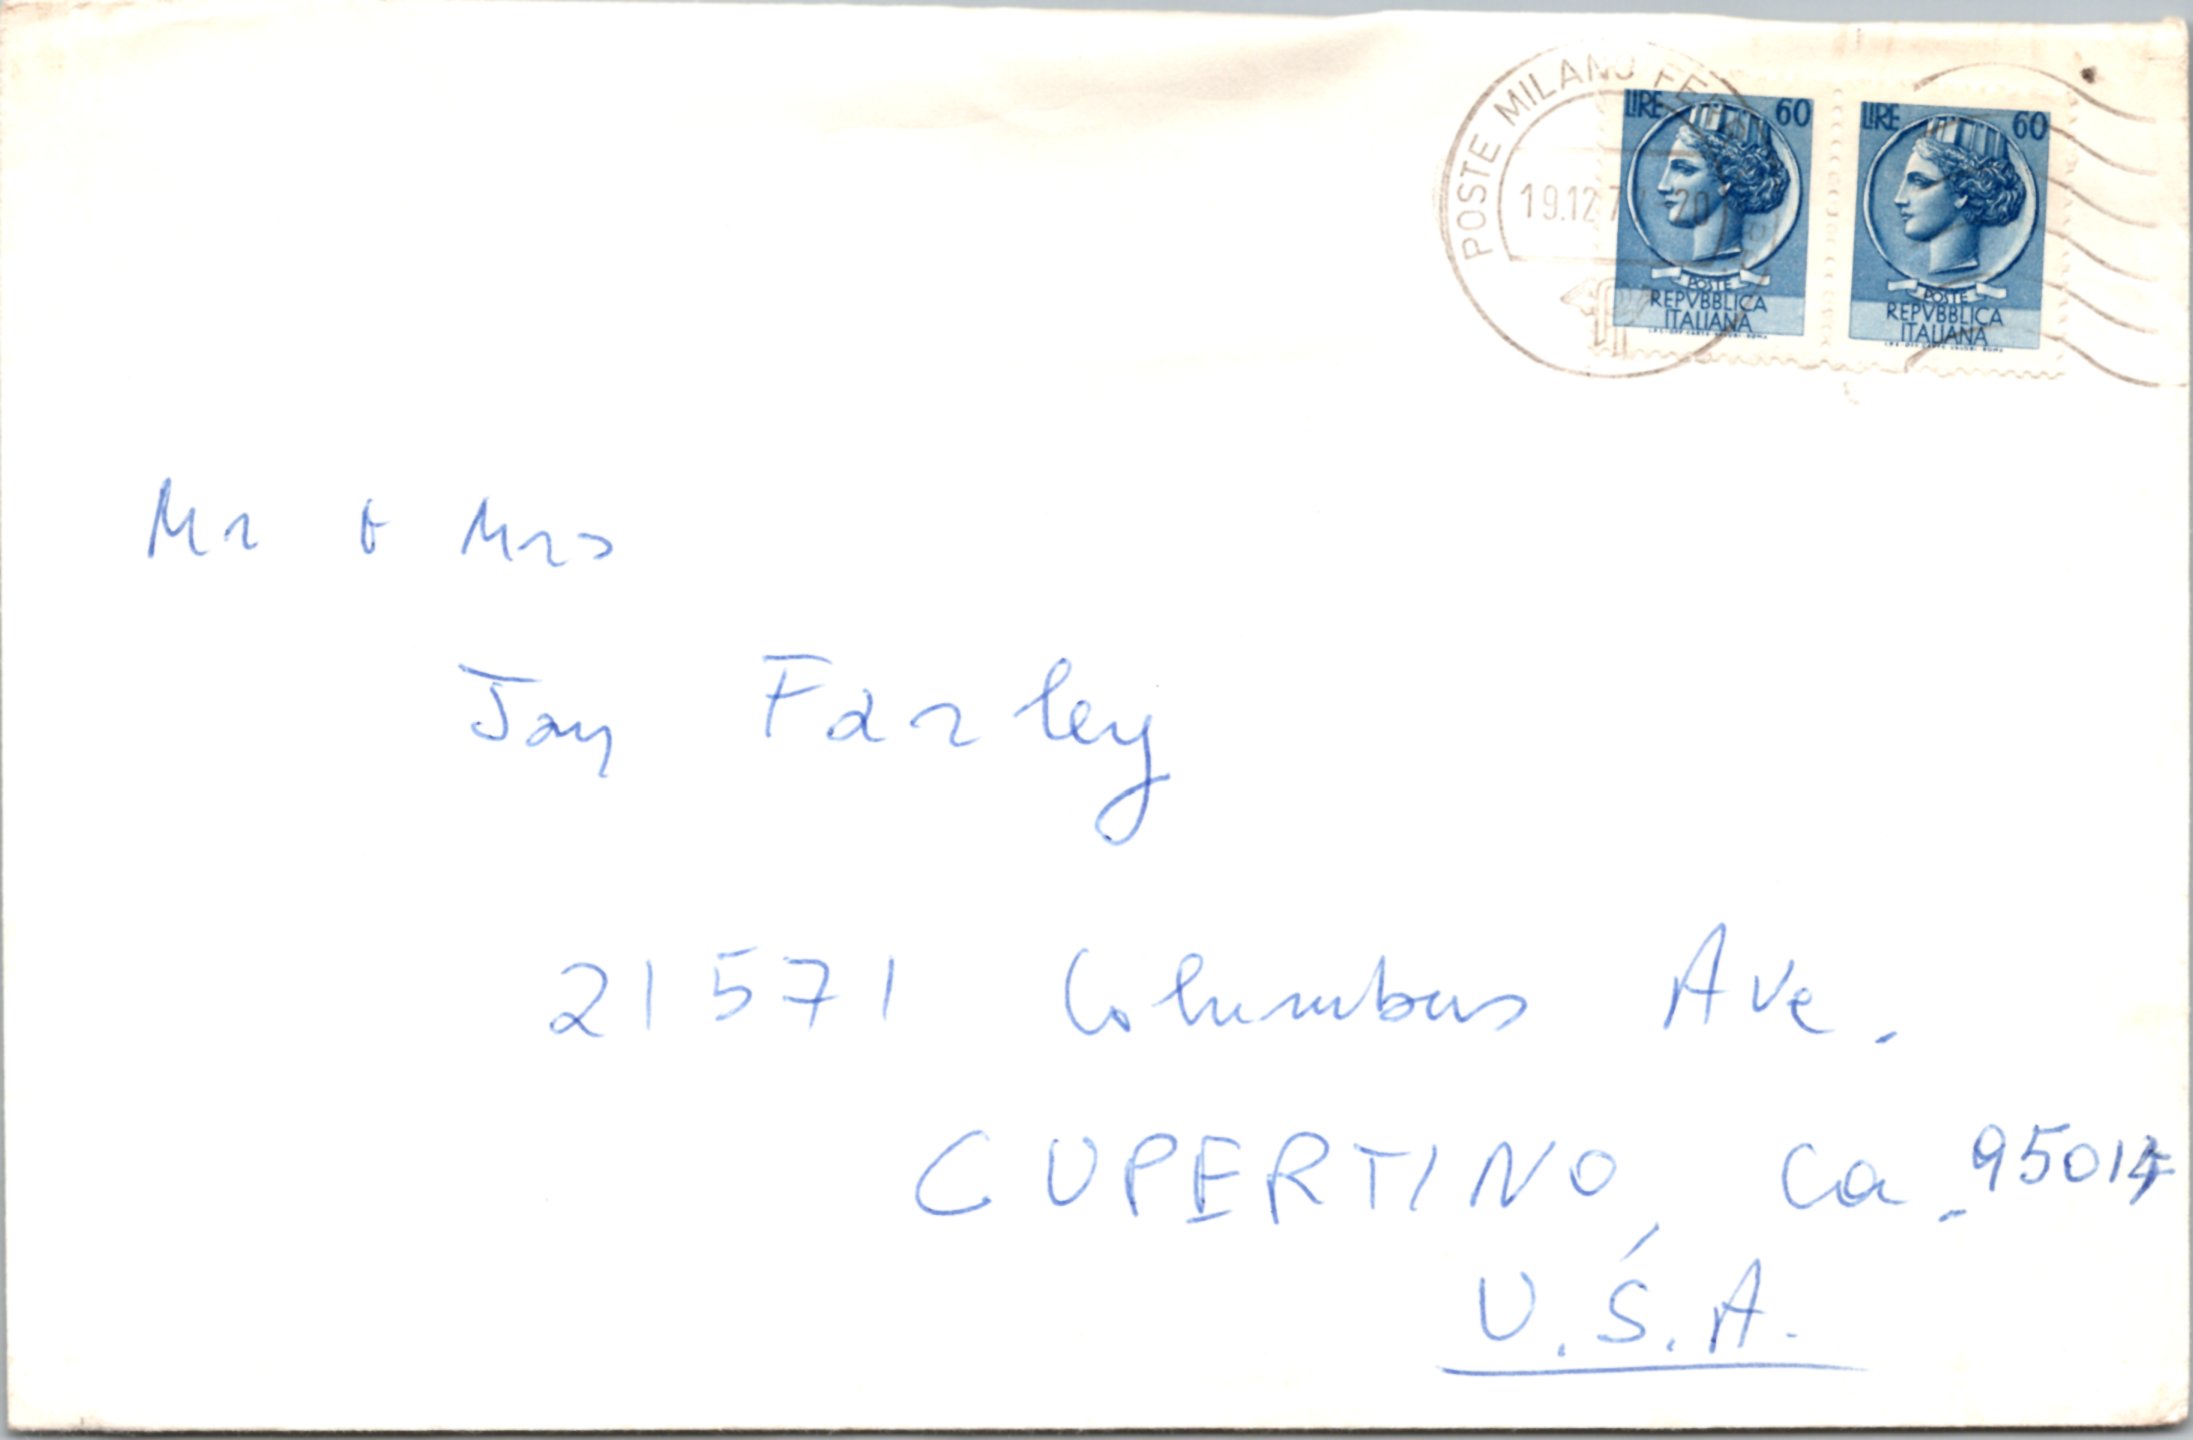 POSTE MILANO
19.12.7 -20
LIRE 60
POSTE
REPVBBLICA
ITALIANA
LIRE 60
POSTE
REPVBBLICA
ITALIANA
Mr & Mrs
Jay Farley
21571 Columbus Ave.
CUPERTINO, Ca. 95014
U.S.A.